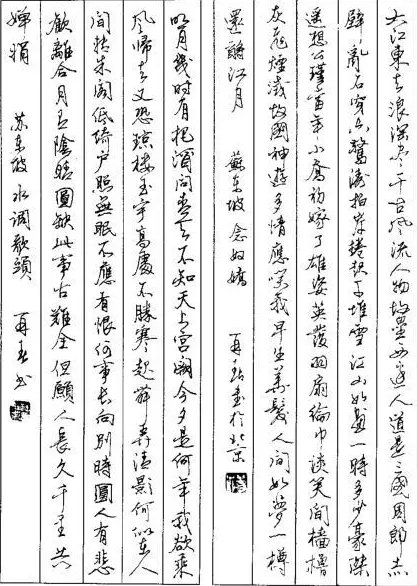 大江東去浪淘盡千古風流人物故壘西邊人道是三國周郎赤
壁亂石穿空驚濤拍岸捲起千堆雪江山如畫一時多少豪傑
遙想公瑾當年小喬初嫁了雄姿英發羽扇綸巾談笑間檣櫓
灰飛煙滅故國神遊多情應笑我早生華髮人間如夢一樽
還酹江月 蘇東坡念奴嬌 再春書於北京
明月幾時有把酒問青天不知天上宮闕今夕是何年我欲乘
風歸去又恐瓊樓玉宇高處不勝寒起舞弄清影何似在人
間轉朱閣低綺戶照無眠不應有恨何事長向別時圓人有悲
歡離合月有陰晴圓缺此事古難全但願人長久千里共
嬋娟 苏东坡水调歌頭 再春书